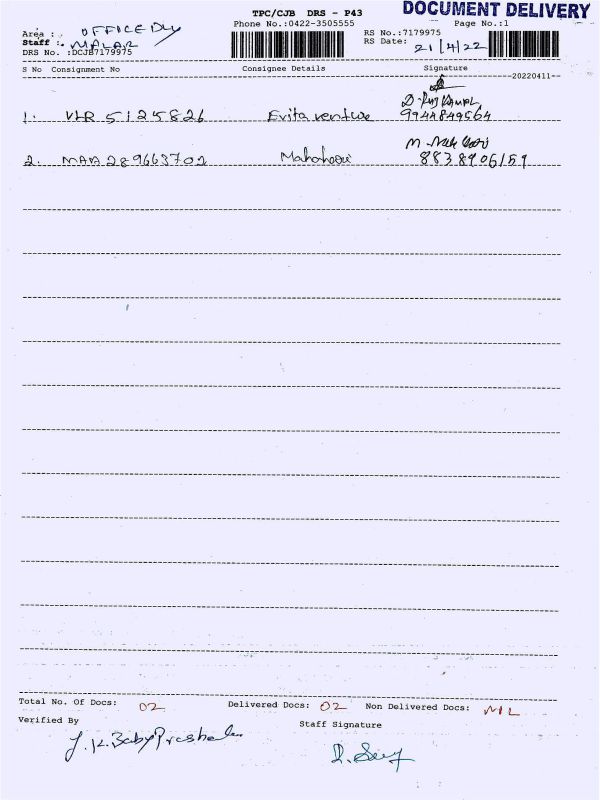 TPC/CJB DRS - P43
DOCUMENT DELIVERY
Phone No.:0422-3505555
Page No.:1
Area : OFFICE Dly
RS No.:7179975
Staff : MALAR
RS Date: 21/4/22
DRS No. :DCJB7179975
S No Consignment No Consignee Details Signature
20220411
1. VLR 5125826 Evita venture D. Raj Kamal
9944849564
2. MAA 289663702 8838906159
Total No. Of Docs: 02 Delivered Docs: 02 Non Delivered Docs: NIL
Verified By Staff Signature